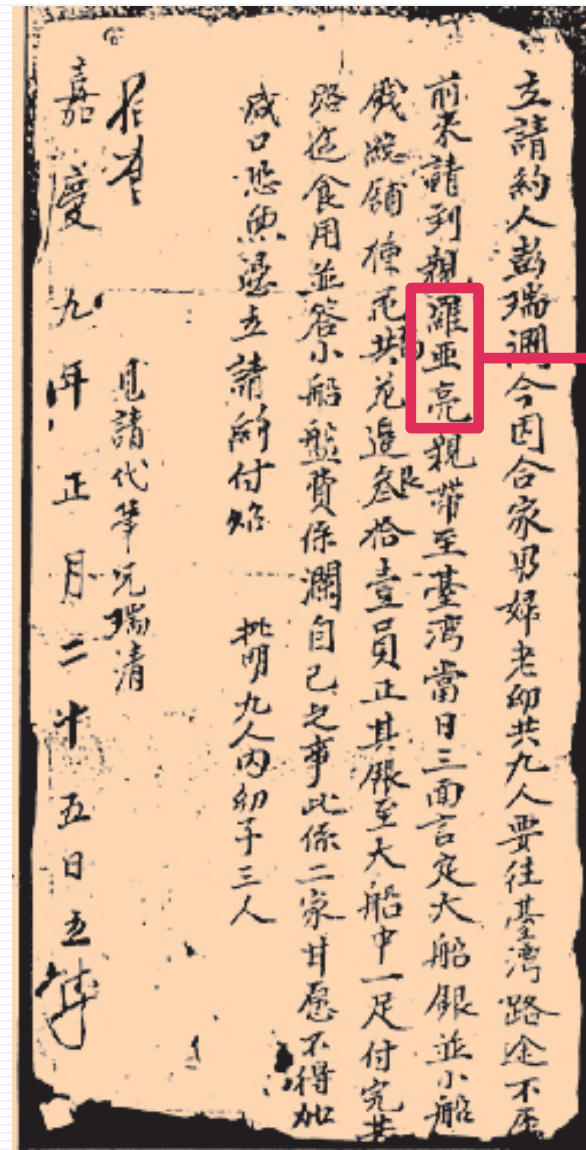 立請約人彭瑞瀾今因合家男婦老幼共九人要往臺灣路途不
前來請到親羅亞亮親帶至臺灣當日三面言定大船銀並小船
鋪共花邊銀叁拾壹員正其銀至大船中一足付完其
路途食用並答小船盤費係瀾自己之事此係二家甘愿不得加
口恐無憑立請約付炤
批明九人內幼子三人
見請代筆兄瑞清
嘉慶九年正月二十五日立